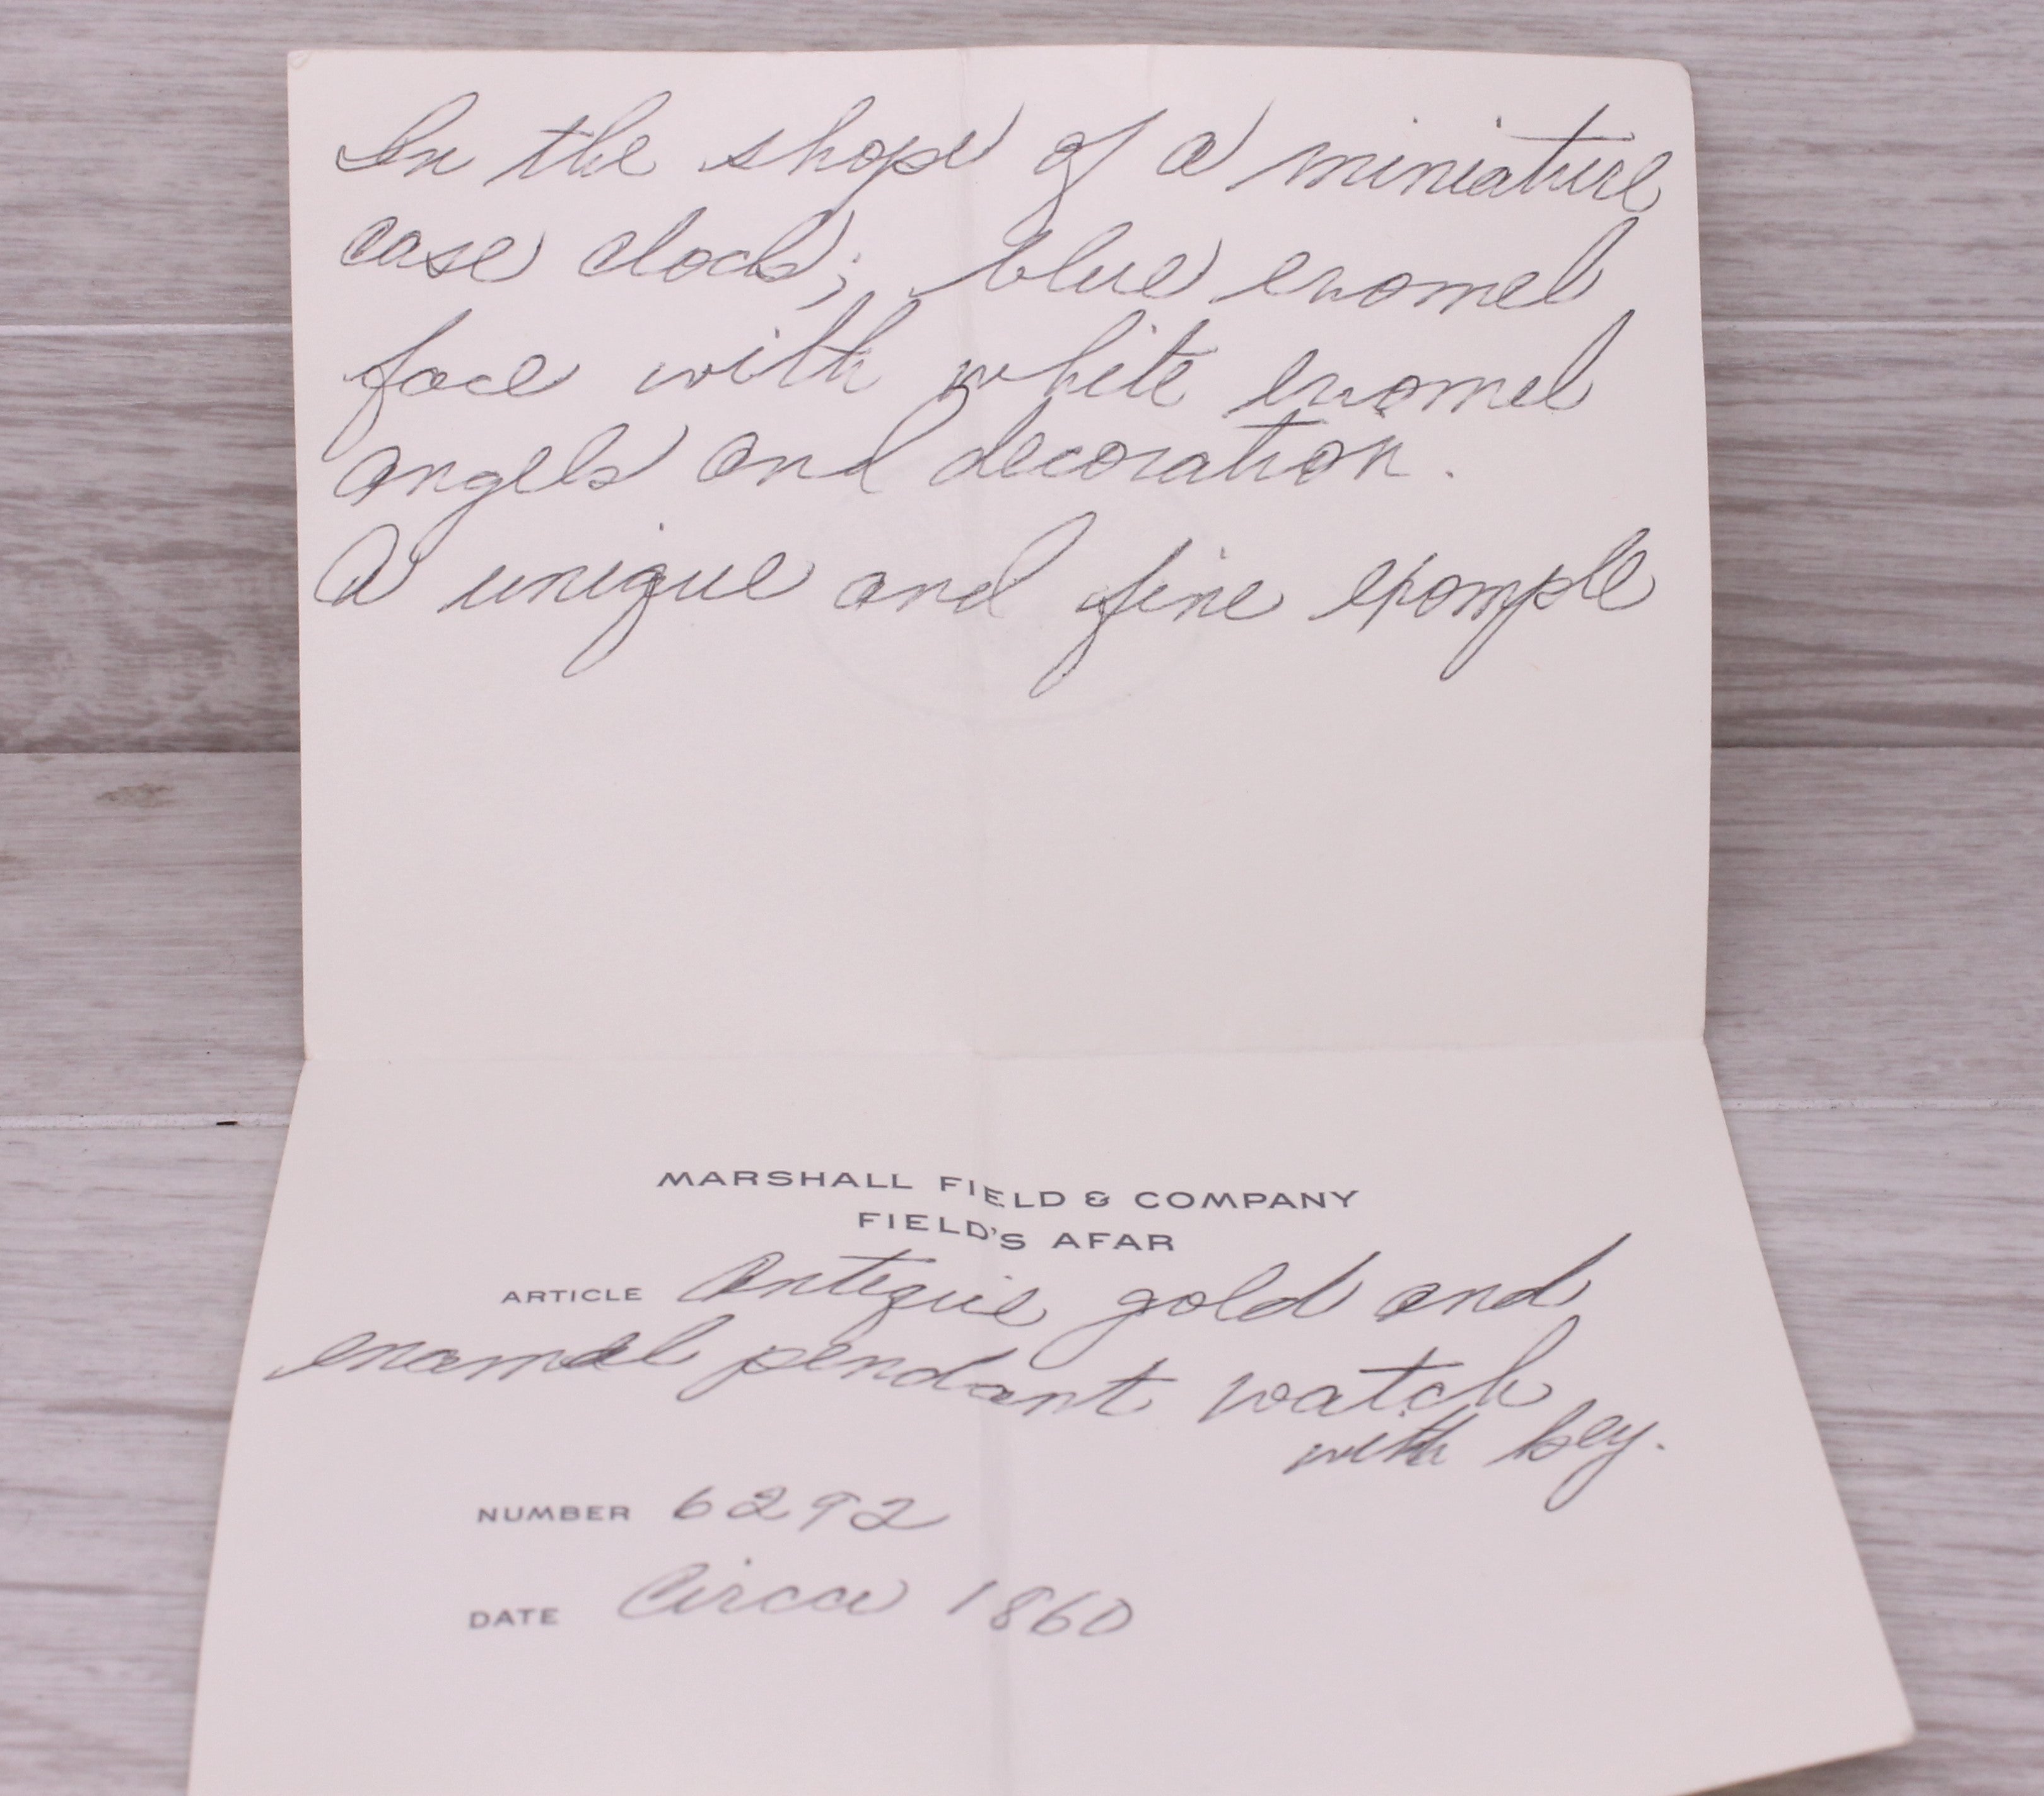 In the shape of a miniature
case clock; blue enamel
face with white enamel
angels and decoration.
A unique and fine example
MARSHALL FIELD & COMPANY
FIELD'S AFAR
ARTICLE Antique gold and
enamel pendant watch
with key.
NUMBER 6292
DATE Circa 1860